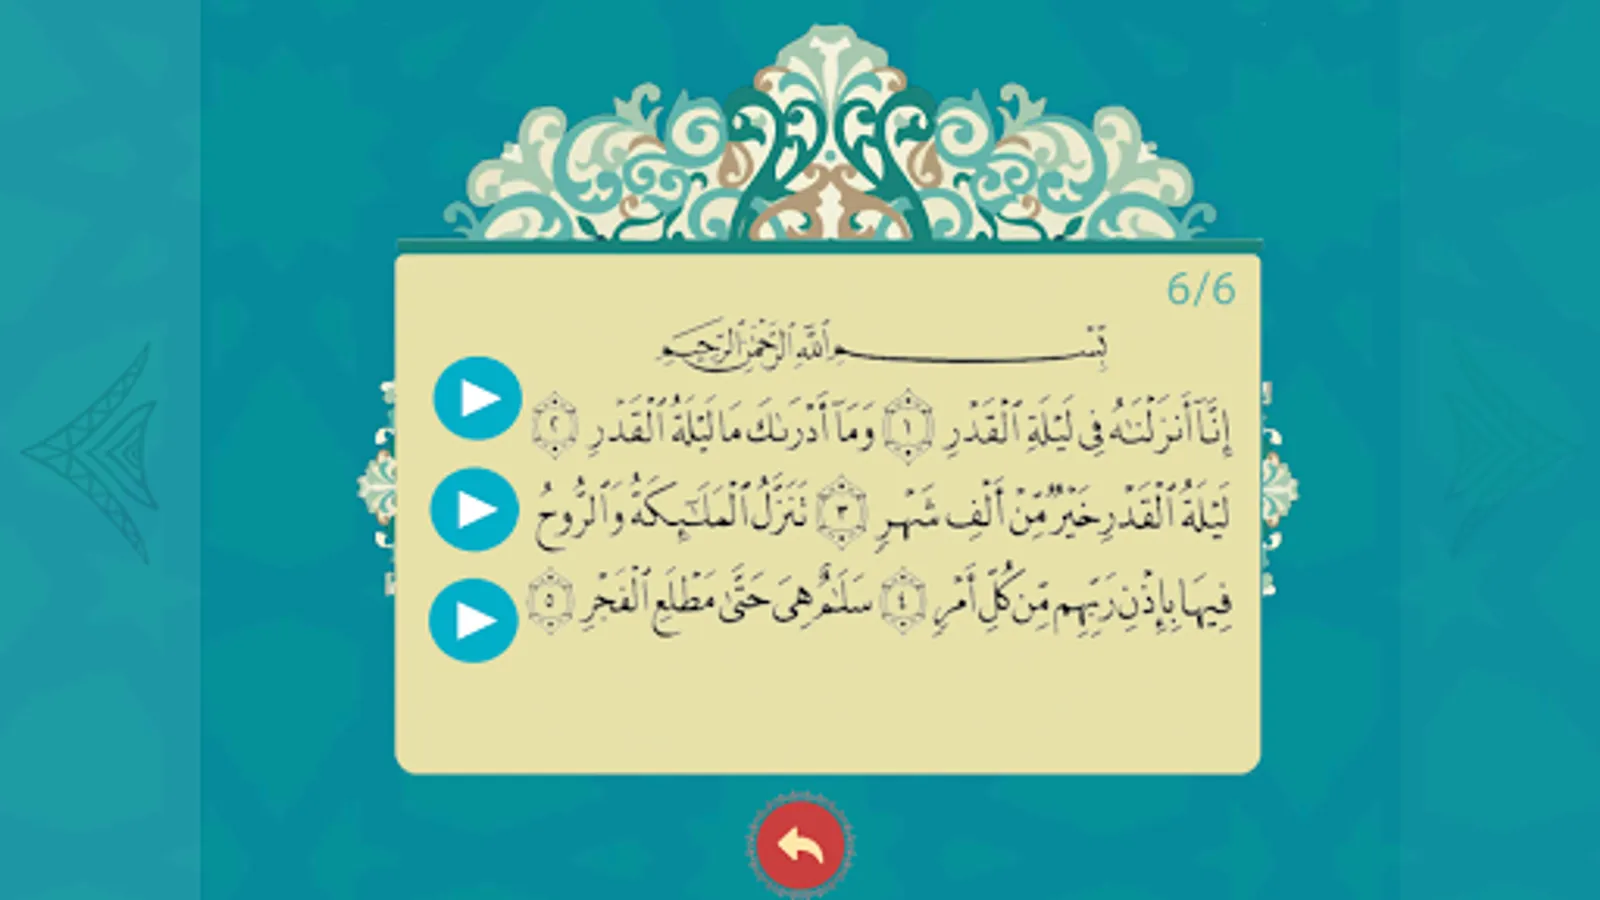 6/6
بِسْمِ ٱللَّهِ ٱلرَّحْمَٰنِ ٱلرَّحِيمِ
إِنَّآ أَنزَلْنَٰهُ فِى لَيْلَةِ ٱلْقَدْرِ ١ وَمَآ أَدْرَىٰكَ مَا لَيْلَةُ ٱلْقَدْرِ ٢
لَيْلَةُ ٱلْقَدْرِ خَيْرٌ مِّنْ أَلْفِ شَهْرٍ ٣ تَنَزَّلُ ٱلْمَلَٰٓئِكَةُ وَٱلرُّوحُ
فِيهَا بِإِذْنِ رَبِّهِم مِّن كُلِّ أَمْرٍ ٤ سَلَٰمٌ هِىَ حَتَّىٰ مَطْلَعِ ٱلْفَجْرِ ٥